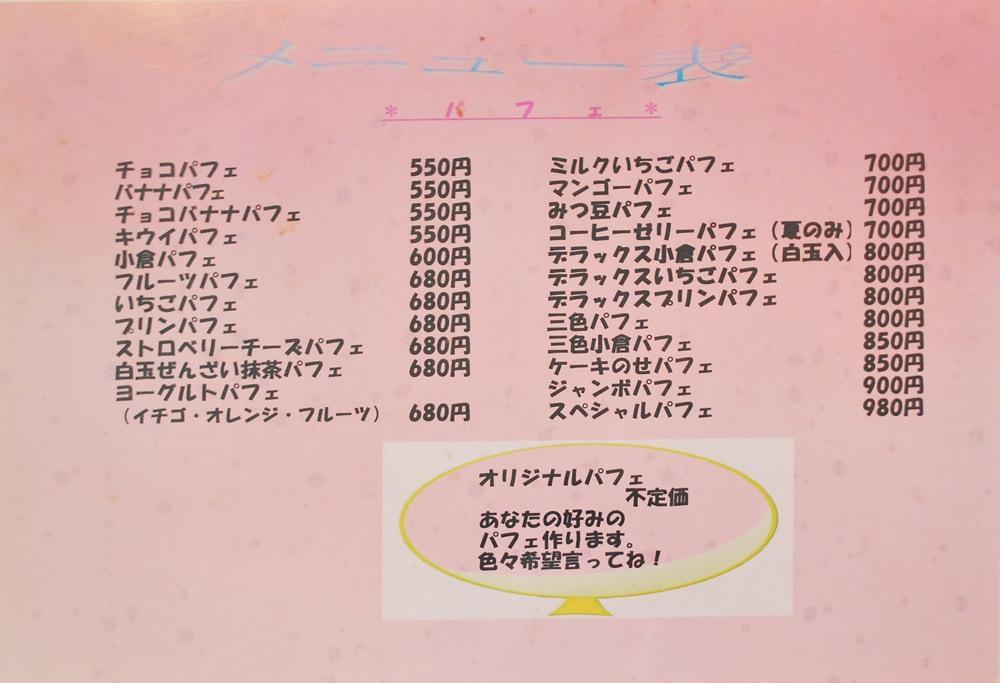 メニュー表
* パフェ *
チョコパフェ 550円
バナナパフェ 550円
チョコバナナパフェ 550円
キウイパフェ 550円
小倉パフェ 600円
フルーツパフェ 680円
いちごパフェ 680円
プリンパフェ 680円
ストロベリーチーズパフェ 680円
白玉ぜんざい抹茶パフェ 680円
ヨーグルトパフェ
（イチゴ・オレンジ・フルーツ） 680円
ミルクいちごパフェ 700円
マンゴーパフェ 700円
みつ豆パフェ 700円
コーヒーゼリーパフェ（夏のみ） 700円
デラックス小倉パフェ（白玉入） 800円
デラックスいちごパフェ 800円
デラックスプリンパフェ 800円
三色パフェ 800円
三色小倉パフェ 850円
ケーキのせパフェ 850円
ジャンボパフェ 900円
スペシャルパフェ 980円
オリジナルパフェ
不定価
あなたの好みの
パフェ作ります。
色々希望言ってね！